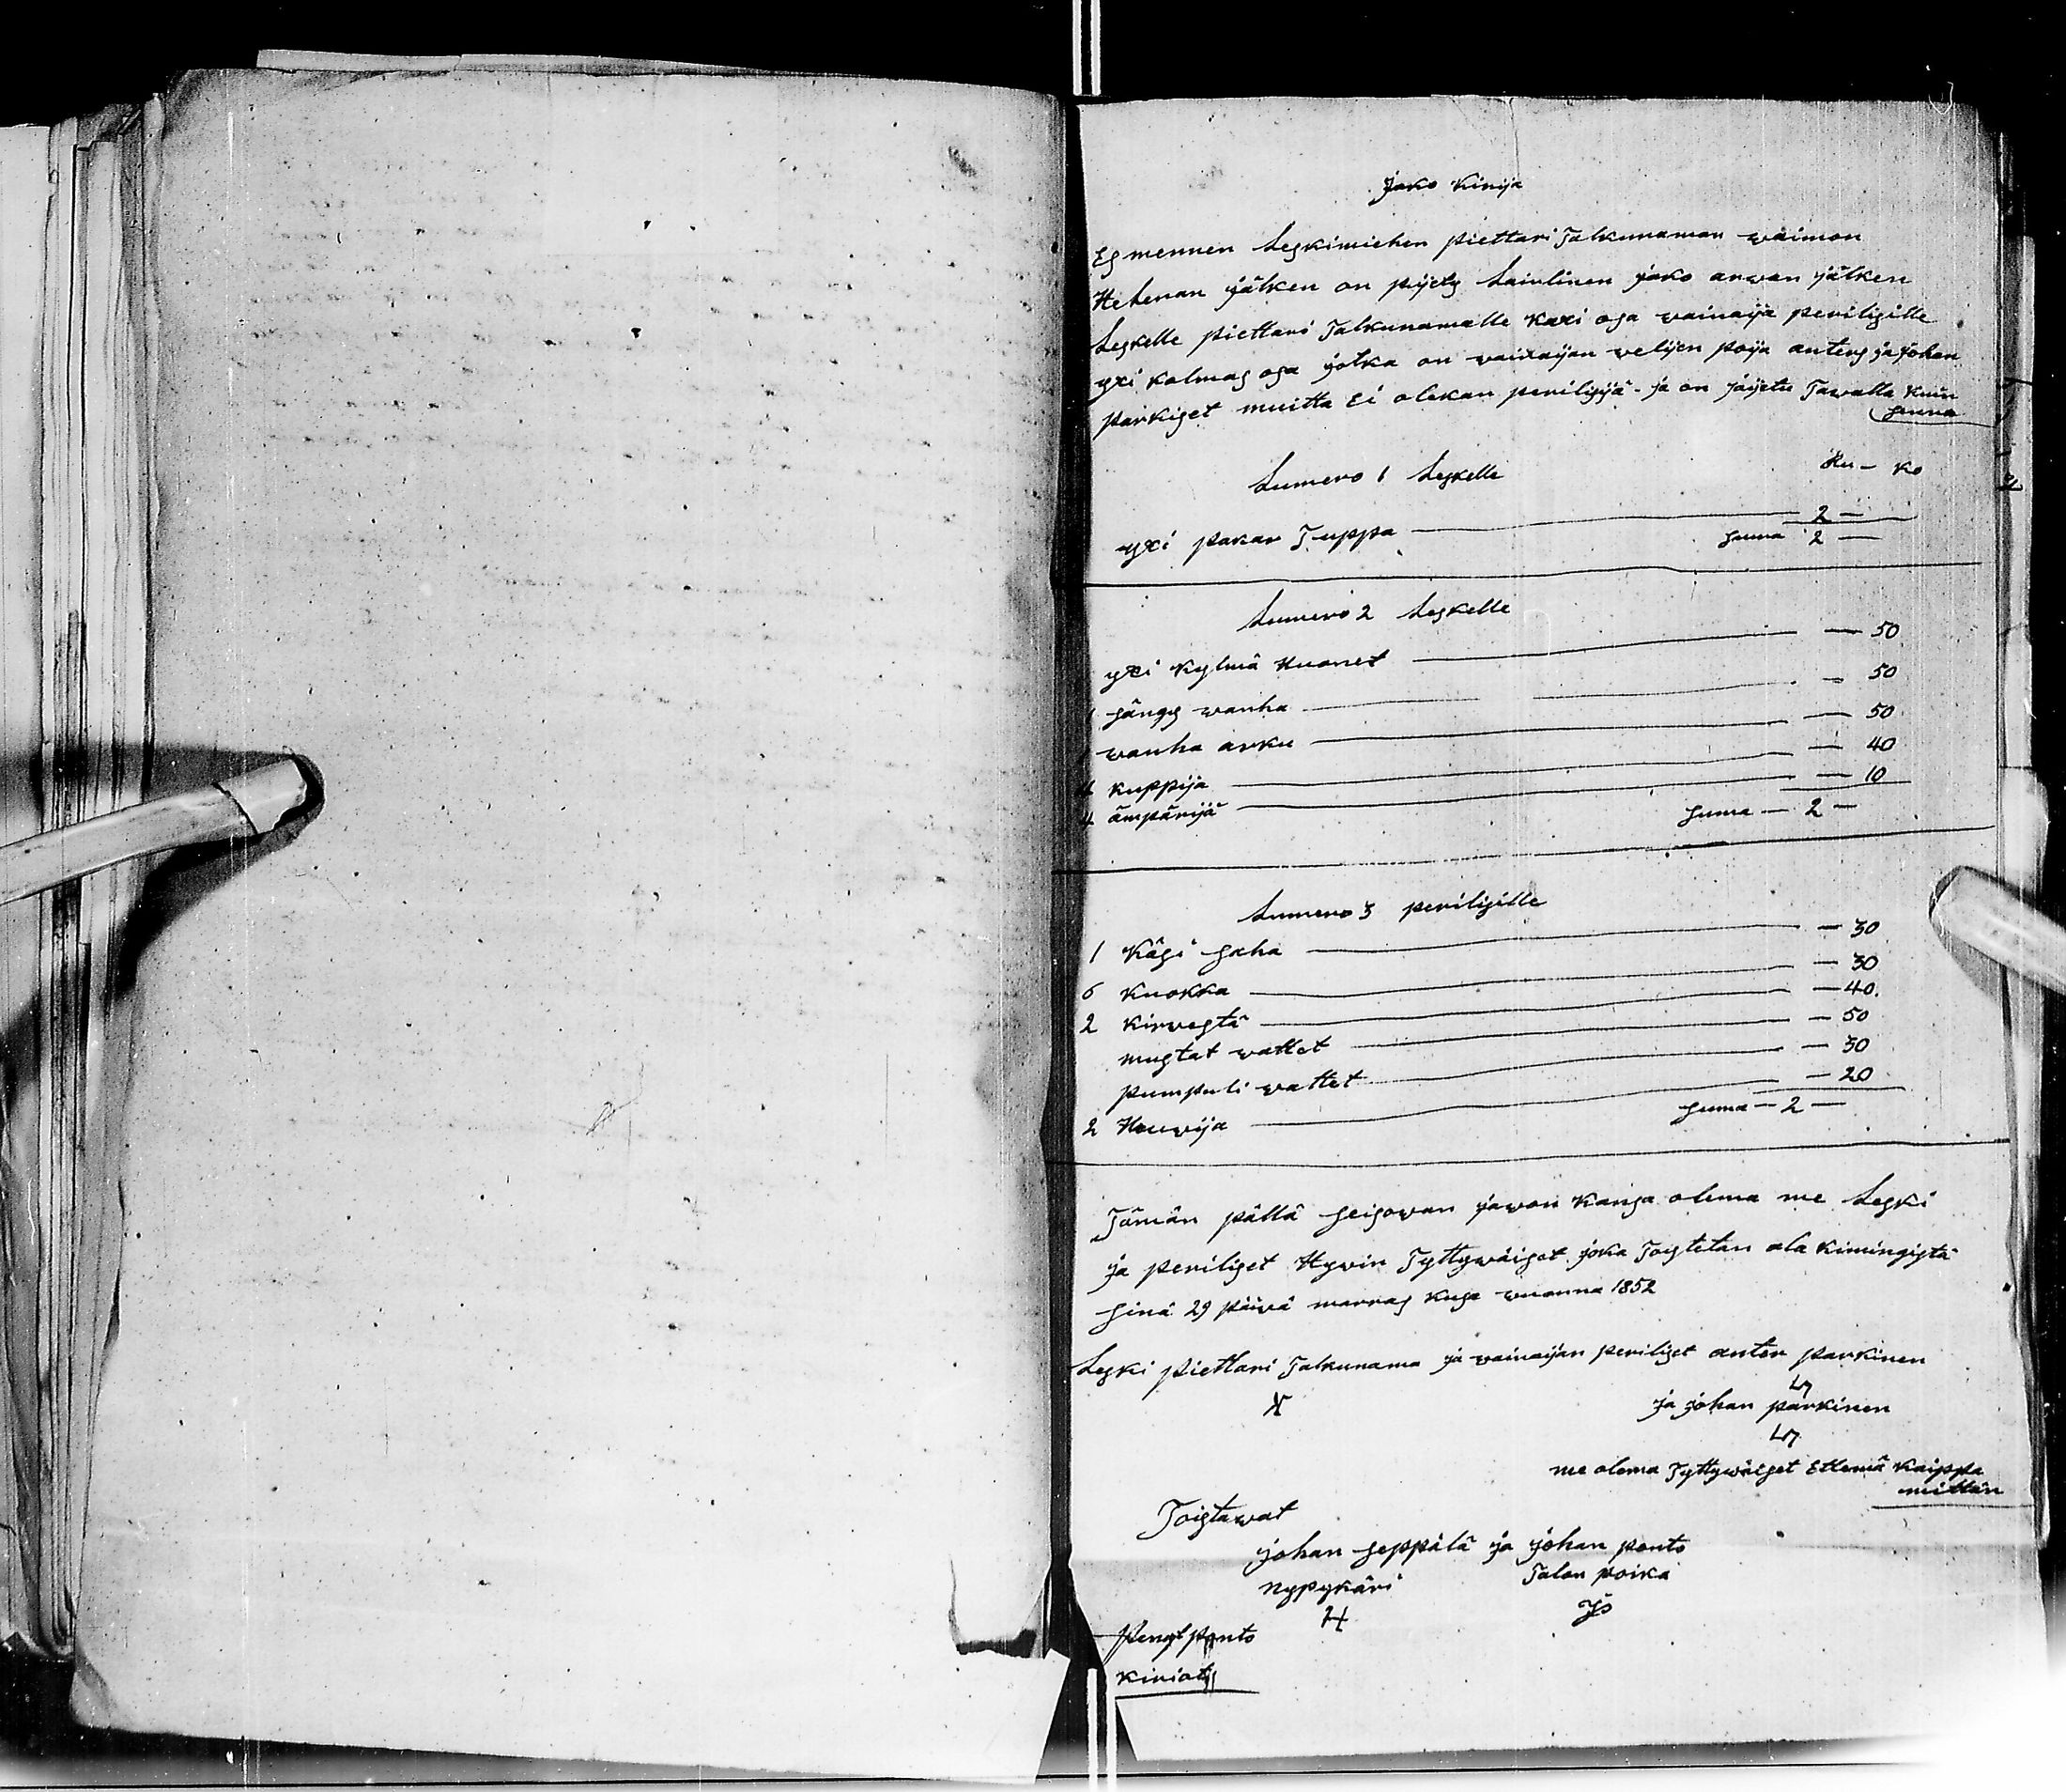 Jako Kirija
Esmennen Leskimiehen piettari Talkunaman waimon
Helenan jälken on pijety Lainlinen jako arwan jälken
Leskelle piettari Talkunamalle Kaxi osa wainaija perilisille
yxi kolmas osa jotka on wainaijan welijen poija anters ja johan
parkiset muitta Ei olekan perilisijä - ja on jaijetu Tawalla kuin
seurra
Lumero 1 Leskelle
Ru - Ko
yxi pakar Tuppa 2 -
suma 2 -
Lumero 2 Leskelle
yxi Kylmä Huonet - 50
1 sängy wanha - 50
1 wanha arku - 50
4 kuppija - 40
4 ämpärijä - 10
suma - 2 -
Lumero 3 perilisille
1 Käsi saha - 30
6 Kuokka - 30
2 Kirwestä - 40
mustat wattet - 50
pumpuli wattet - 30
2 Hauwija - 20
suma - 2 -
Tämän pällä seisowan jawon Kansa olema me Leski
ja periliset Hywin Tyttywäiset joka Toistetan ala Kimingistä
sinä 29 päivä marras kusa wuonna 1852
Leski piettari Talkunama ja wainaijan periliset anter parkinen
X
ja johan parkinen
me olema Tyttywäiset Ettemä Kaippa
mittän
Toistawat
johan seppälä ja johan ponto
nypykäri Talon poika
H JP
pengt ponto
kiriotij